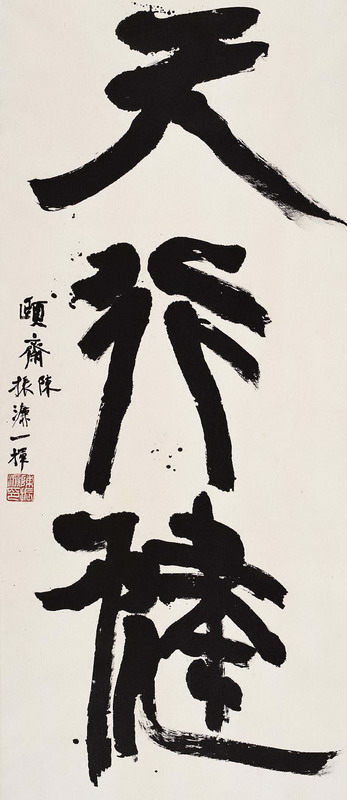 天行健
頤齋陳
振濂一揮